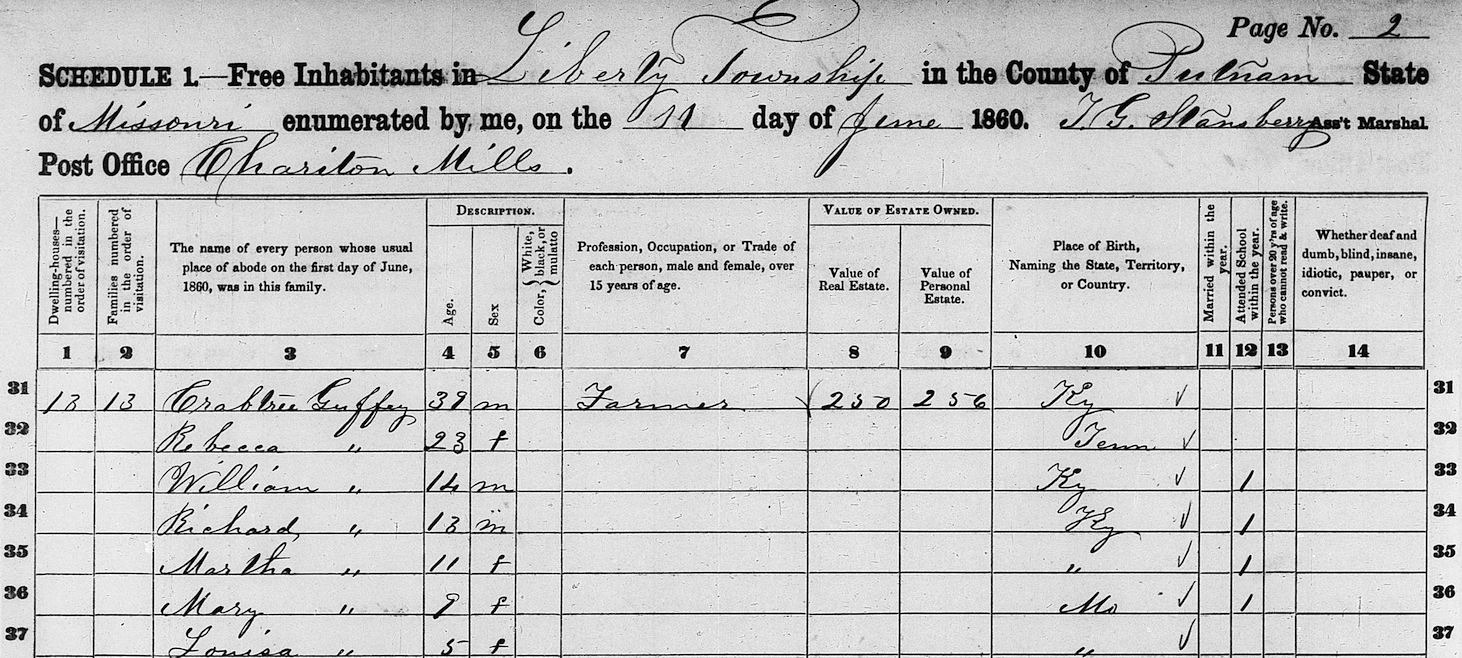 Page No. 2
SCHEDULE 1.—Free Inhabitants in Liberty Township in the County of Putnam State
of Missouri enumerated by me, on the 11 day of June 1860. T. G. Stansberry Ass't Marshal
Post Office Chariton Mills.
Dwelling-houses—numbered in the order of visitation.
Families numbered in the order of visitation.
The name of every person whose usual
place of abode on the first day of June,
1860, was in this family.
DESCRIPTION.
Age.
Sex
Color, { White, black, or mulatto
Profession, Occupation, or Trade of
each person, male and female, over
15 years of age.
VALUE OF ESTATE OWNED.
Value of
Real Estate.
Value of
Personal
Estate.
Place of Birth,
Naming the State, Territory,
or Country.
Married within the year.
Attended School within the year.
Persons over 20 y'rs of age who cannot read & write.
Whether deaf and
dumb, blind, insane,
idiotic, pauper, or
convict.
1 2 3 4 5 6 7 8 9 10 11 12 13 14
31 13 13 Crabtree Guffey 39 m Farmer 250 256 Ky 31
32 Rebecca " 23 f Tenn 32
33 William " 14 m Ky 1 33
34 Richard " 13 m Ky 1 34
35 Martha " 11 f " 1 35
36 Mary " f Mo 1 36
37 Louisa " 5 f " 37